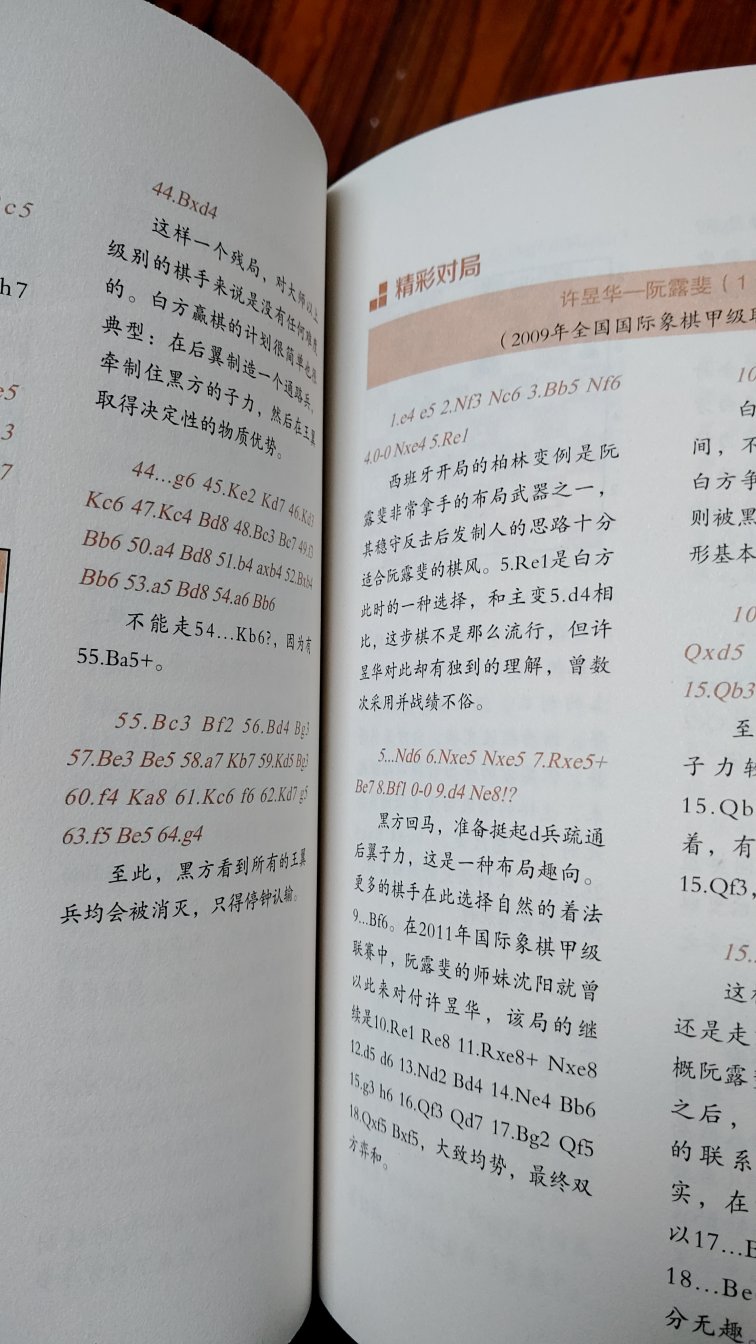 c5
h7
e5
3
7
44.Bxd4
这样一个残局，对大师以上
级别的棋手来说是没有任何难度
的。白方赢棋的计划很简单也很
典型：在后翼制造一个通路兵，
牵制住黑方的子力，然后在王翼
取得决定性的物质优势。
44...g6 45.Ke2 Kd7 46.Kd3
Kc6 47.Kc4 Bd8 48.Bc3 Bc7 49.f3
Bb6 50.a4 Bd8 51.b4 axb4 52.Bxb4
Bb6 53.a5 Bd8 54.a6 Bb6
不能走54...Kb6?，因为有
55.Ba5+。
55.Bc3 Bf2 56.Bd4 Bg3
57.Be3 Be5 58.a7 Kb7 59.Kd5 Bg3
60.f4 Ka8 61.Kc6 f6 62.Kd7 g5
63.f5 Be5 64.g4
至此，黑方看到所有的王翼
兵均会被消灭，只得停钟认输。
精彩对局
许昱华—阮露斐（1
（2009年全国国际象棋甲级联
1.e4 e5 2.Nf3 Nc6 3.Bb5 Nf6
4.0-0 Nxe4 5.Re1
西班牙开局的柏林变例是阮
露斐非常拿手的布局武器之一，
其稳守反击后发制人的思路十分
适合阮露斐的棋风。5.Re1是白方
此时的一种选择，和主变5.d4相
比，这步棋不是那么流行，但许
昱华对此却有独到的理解，曾数
次采用并战绩不俗。
5...Nd6 6.Nxe5 Nxe5 7.Rxe5+
Be7 8.Bf1 0-0 9.d4 Ne8!?
黑方回马，准备挺起d兵疏通
后翼子力，这是一种布局趣向。
更多的棋手在此选择自然的着法
9...Bf6。在2011年国际象棋甲级
联赛中，阮露斐的师妹沈阳就曾
以此来对付许昱华，该局的继
续是10.Re1 Re8 11.Rxe8+ Nxe8
12.d5 d6 13.Nd2 Bd4 14.Ne4 Bb6
15.g3 h6 16.Qf3 Qd7 17.Bg2 Qf5
18.Qxf5 Bxf5，大致均势，最终双
方弈和。
10
白
间，不
白方争
则被黑
形基本
10
Qxd5
15.Qb3
至
子力转
15.Qb
着，有
15.Qf3，
15..
这
还是走
概阮露斐
之后，
的联系
实，在
以17...B
18...Be
分无趣